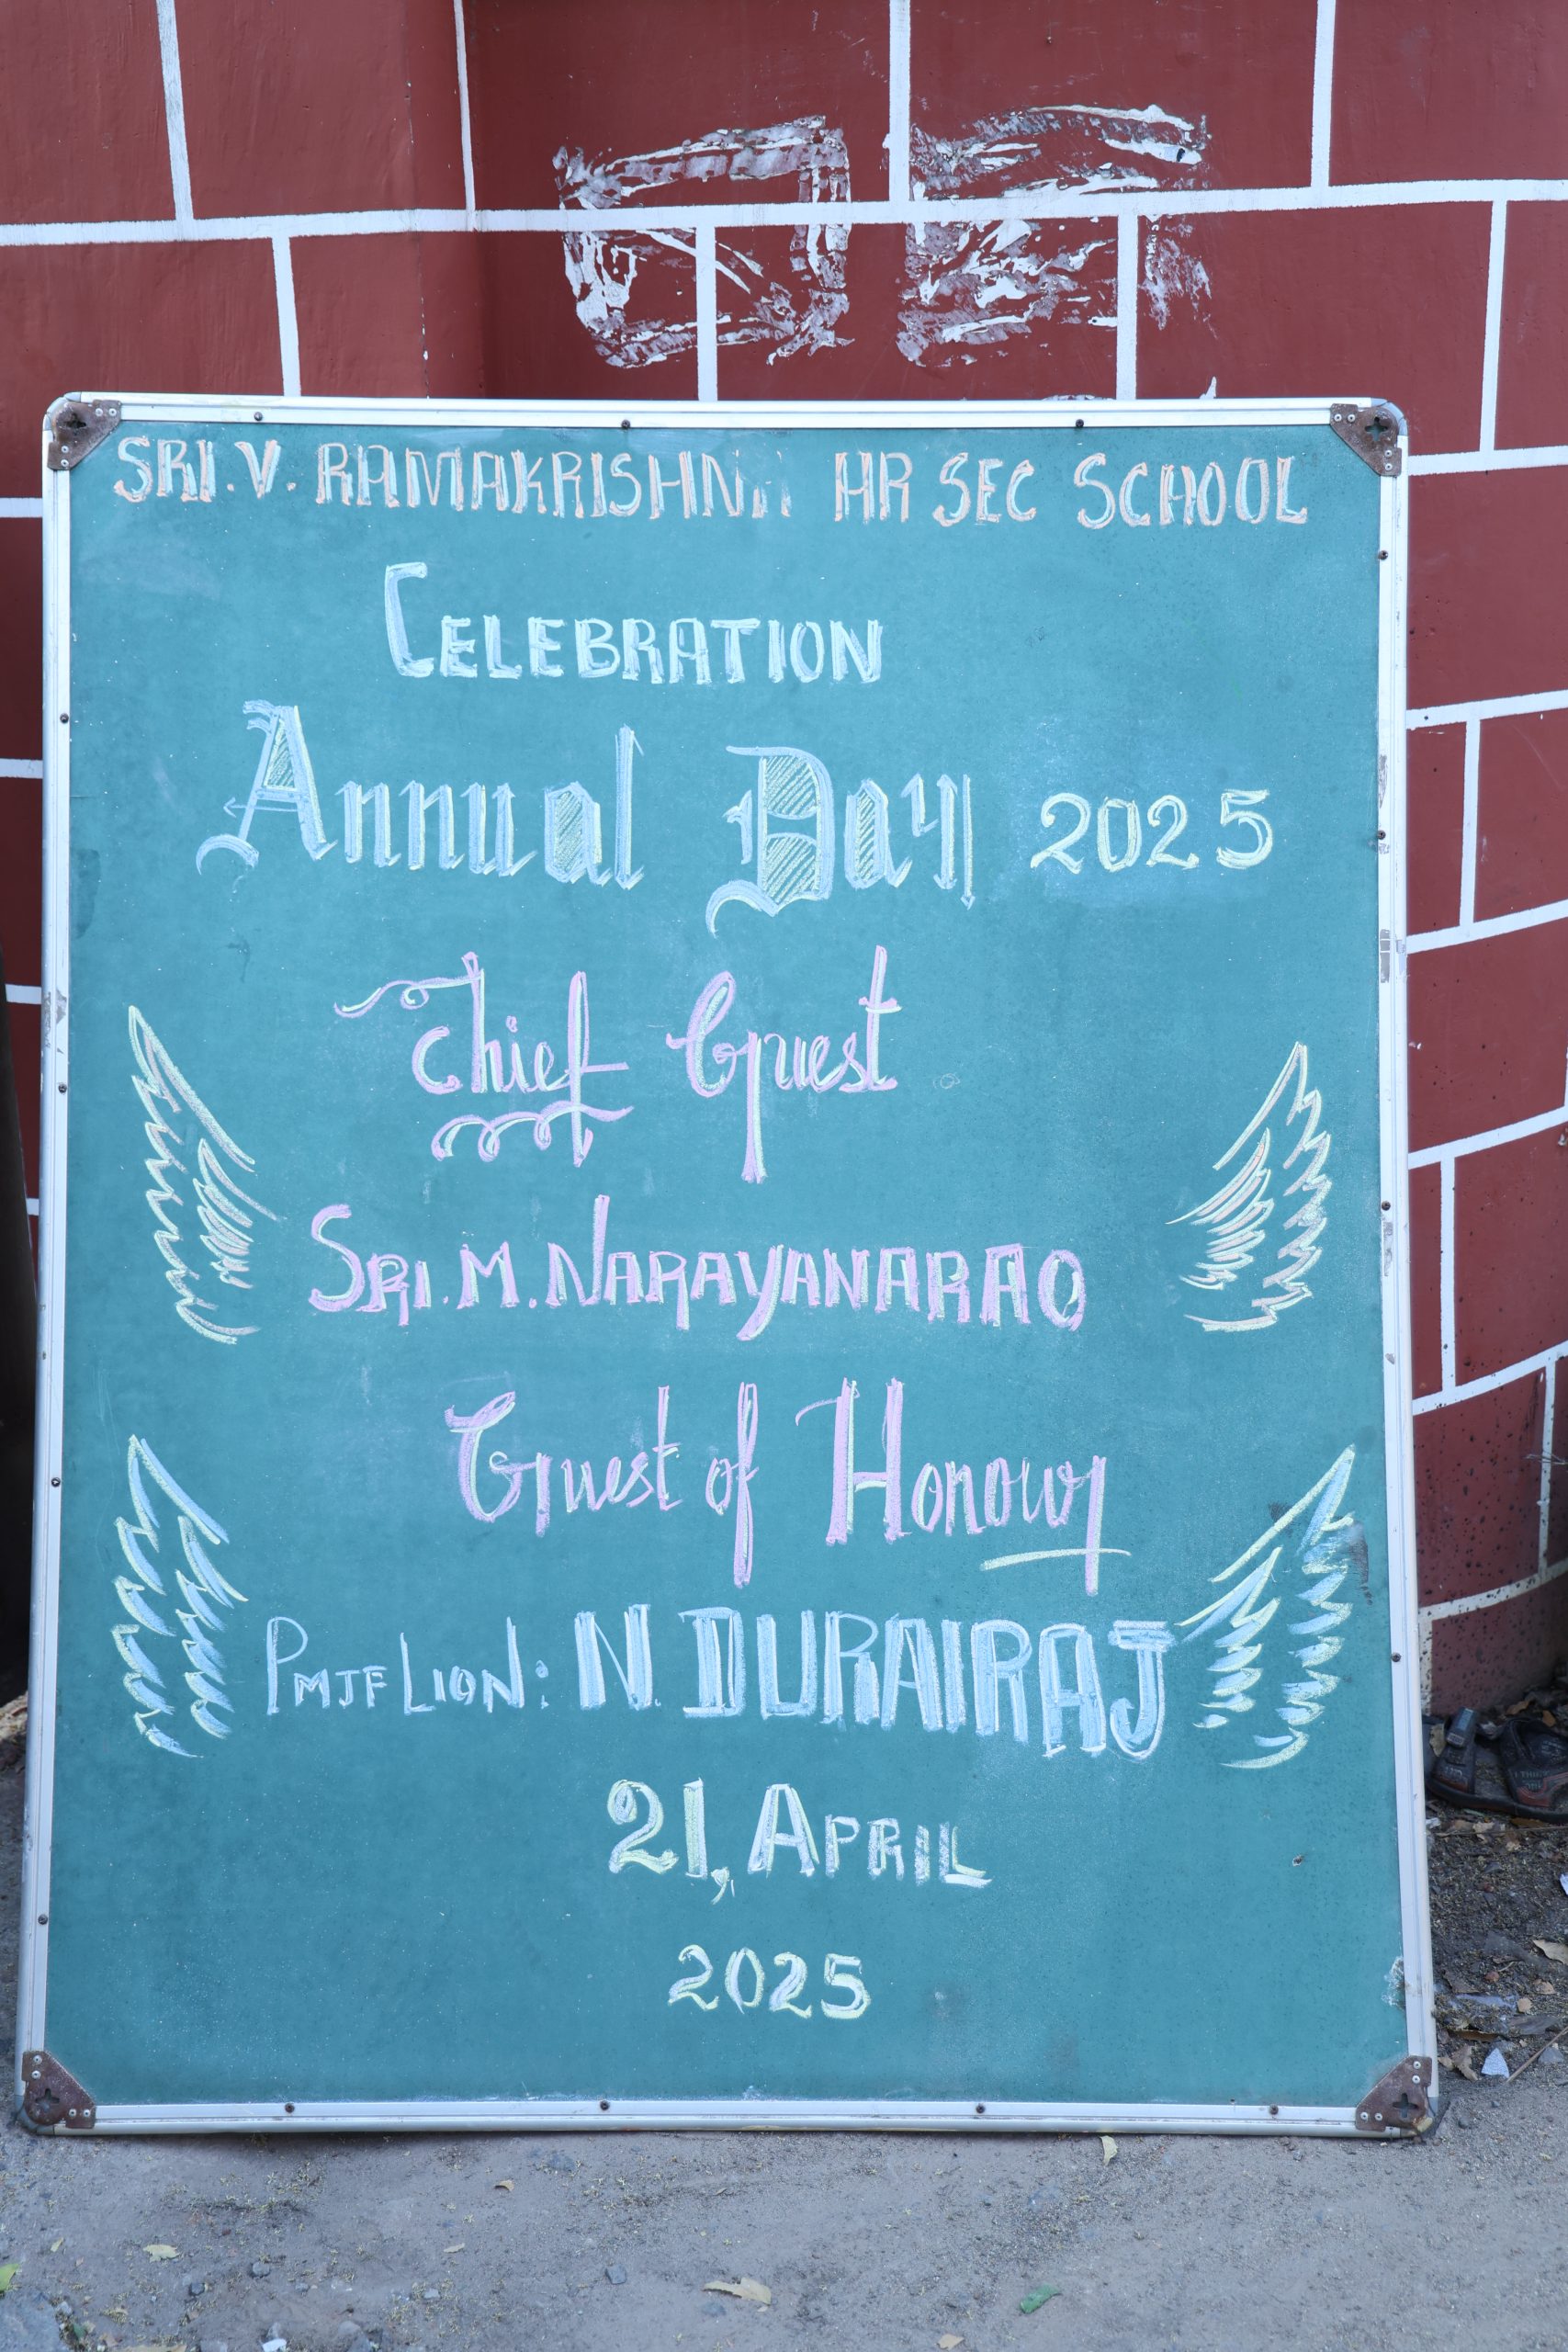 SRI.V. RAMAKRISHNA HR SEC SCHOOL
CELEBRATION
Annual Day 2025
Chief Guest
SRI.M.NARAYANARAO
Guest of Honour
PMJF LION: N.DURAIRAJ
21, APRIL
2025